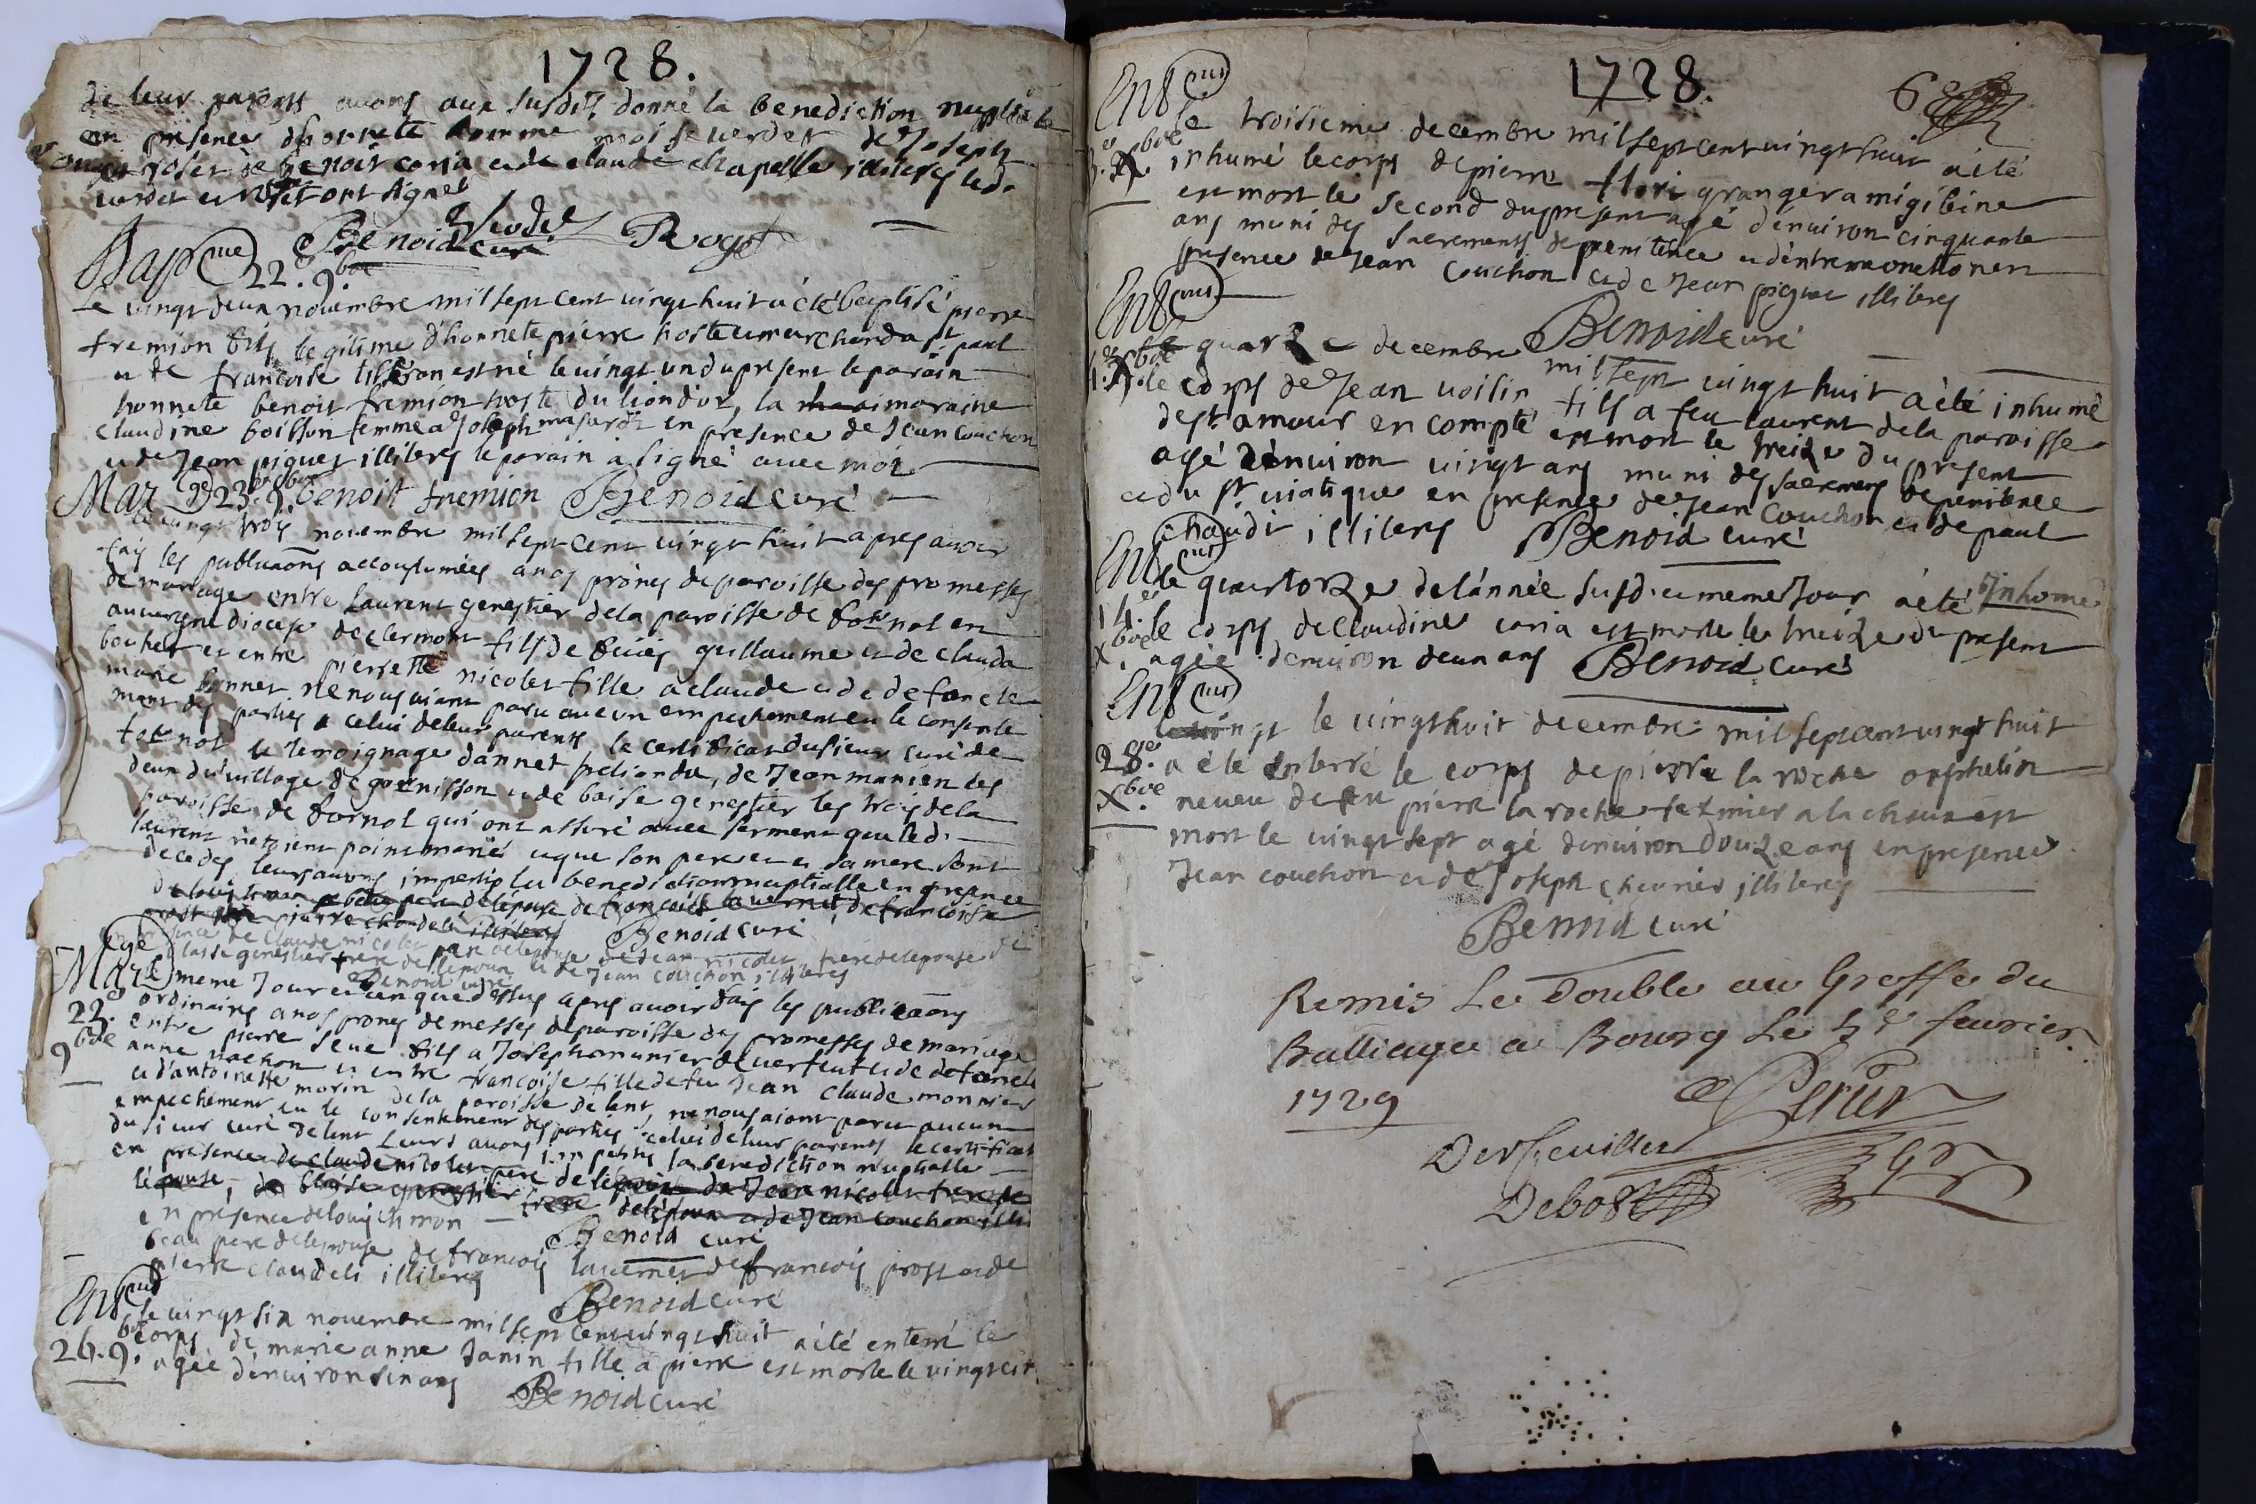 1728.
de leur parents avons aux susdits donné la benediction nuptiale
en presence d'honnete homme moise verdet de Joseph
roset de benoit coria et de claude chapelle illiteres led.
verdet et roset ont signé
Benoid curé Verdet Roget
Bapme 22.e 9.bre
Le vingt deux novembre mil sept cent vingt huit a été baptisé pierre
fremion fils legitime d'honnete pierre hoste et marchand a st paul
et de francoise tisseron est né le vingt un du present le parain
honnete benoit fremion hoste du lion d'or, la maraine
claudine boisson femme a Joseph masard en presence de Jean couchon
et de Jean piquet illiteres le parain a signé avec moi
benoit fremion Benoid curé
Mar.ge 23.e 9.bre
le vingt trois novembre mil sept cent vingt huit apres avoir
fais les publicaõns accoustumées a nos prônes de paroisse des promesses
de mariage entre laurent genestier de la paroisse de fornol en
auvergne diocese de clermont fils de guillaume et de clauda
bouher et entre pierrette nicolet fille a claude et de defuncte
marie bonnet ne nous aiant paru aucun empechement eu le consente
ment des parties celui de leur parents le certificat du sieur curé de
fornol le temoignage dannet de Jean les
deux du village de et de baise genestier les trois de la
paroisse de fornol qui ont assuré avec serment que led.
laurent n'etoient point marié et que son pere et sa mere sont
decedes, leurs avons impertis la benediction nuptialle en presence
Benoid curé
en presence de claude nicolet pere de lepouse de Jean nicolet frere de lepouse de
blaise genestier frere de lepoux et de Jean couchon illiteres
Benoid curé
Marge
22.e
9.bre
Le meme Jour et an que dessus apres avoir fais les publicaõns
ordinaires a nos prones de messes de paroisse des promesses de mariage
entre pierre seue fils a Joseph munier de verfent et de defuncte
anne nachon et entre francoise fille de feu Jean claude monnier
et d'antoinette morin de la paroisse de lent, ne nous aiant paru aucun
empechement eu le consentement des parties celui de leur parents le certificat
du sieur curé de lent Leurs avons impertis la benediction nuptialle
en presence de claude nicolet pere de lépouse de Jean nicolet frere de
lépouse, de blaise genestier frere de lépoux et de Jean couchon illi
en presence de louis Benoid curé
beau pere de lepouse de francois lavernet de francois prost et de
pierre claudeli illiteres
Benoid curé
Entment
26. 9.bre
Le vingt six novembre mil sept cent vingt huit a été enterré le
corps de marie anne Janin fille a pierre est morte le vingt cin
agée d'environ six ans
Benoid curé
1728.
6e
Entment
3.e Xbre
Le troisieme decembre mil sept cent vingt huit a été
inhumé le corps de pierre flori granger a migibine
est mort le second du present agé d'environ cinquante
ans muni des sacrements de penitence et d'extreme onction en
presence de Jean Couchon et de Jean piquet illiteres
Benoid curé
Entment
14.e Xbre
le quatorze decembre mil sept vingt huit a été inhumé
le corps de Jean voisin fils a feu laurent de la paroisse
de st. amour en compté est mort le treize du present
agé d'environ vingt ans muni des sacremens de penitence
et du st. viatique en presence de Jean Couchon et de paul
chaudi illiteres Benoid curé
Entment
14.e
Xbre
le quatorze de l'année susd. et meme Jour a été Inhumé
le corps de Claudine coria est morte le treize du present
agée d'environ deux ans Benoid curé
Entment
28.e
X.bre
le vingt huit decembre mil sept cent vingt huit
a été enterré le corps de pierre la roche orphelin
neveu de feu pierre la roche fermier a la chaux est
mort le vingt sept agé d'environ douze ans en presence
Jean couchon et de Joseph chevrier illiteres
Benoid curé
Remis Le Double au Greffe du
Balliage a Bourg Le 5e feurier
1729
Perier
Desfeuilles
Debost